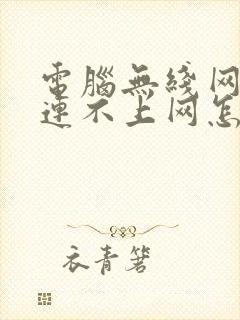 電腦無綫网
連不上网怎
衣青箬